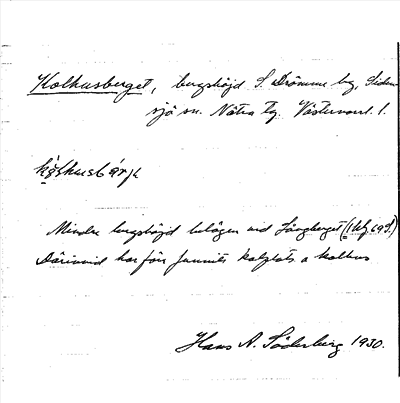 Kolhusberget, bergshöjd S. Drömme by, Siden-
sjö sn. Nätra tg. Västernorrl. l.
Mindre bergshöjd belägen vid Långberget
Därinvid har förr funnits kolplats o kolhus
Hans A. Söderberg 1930.